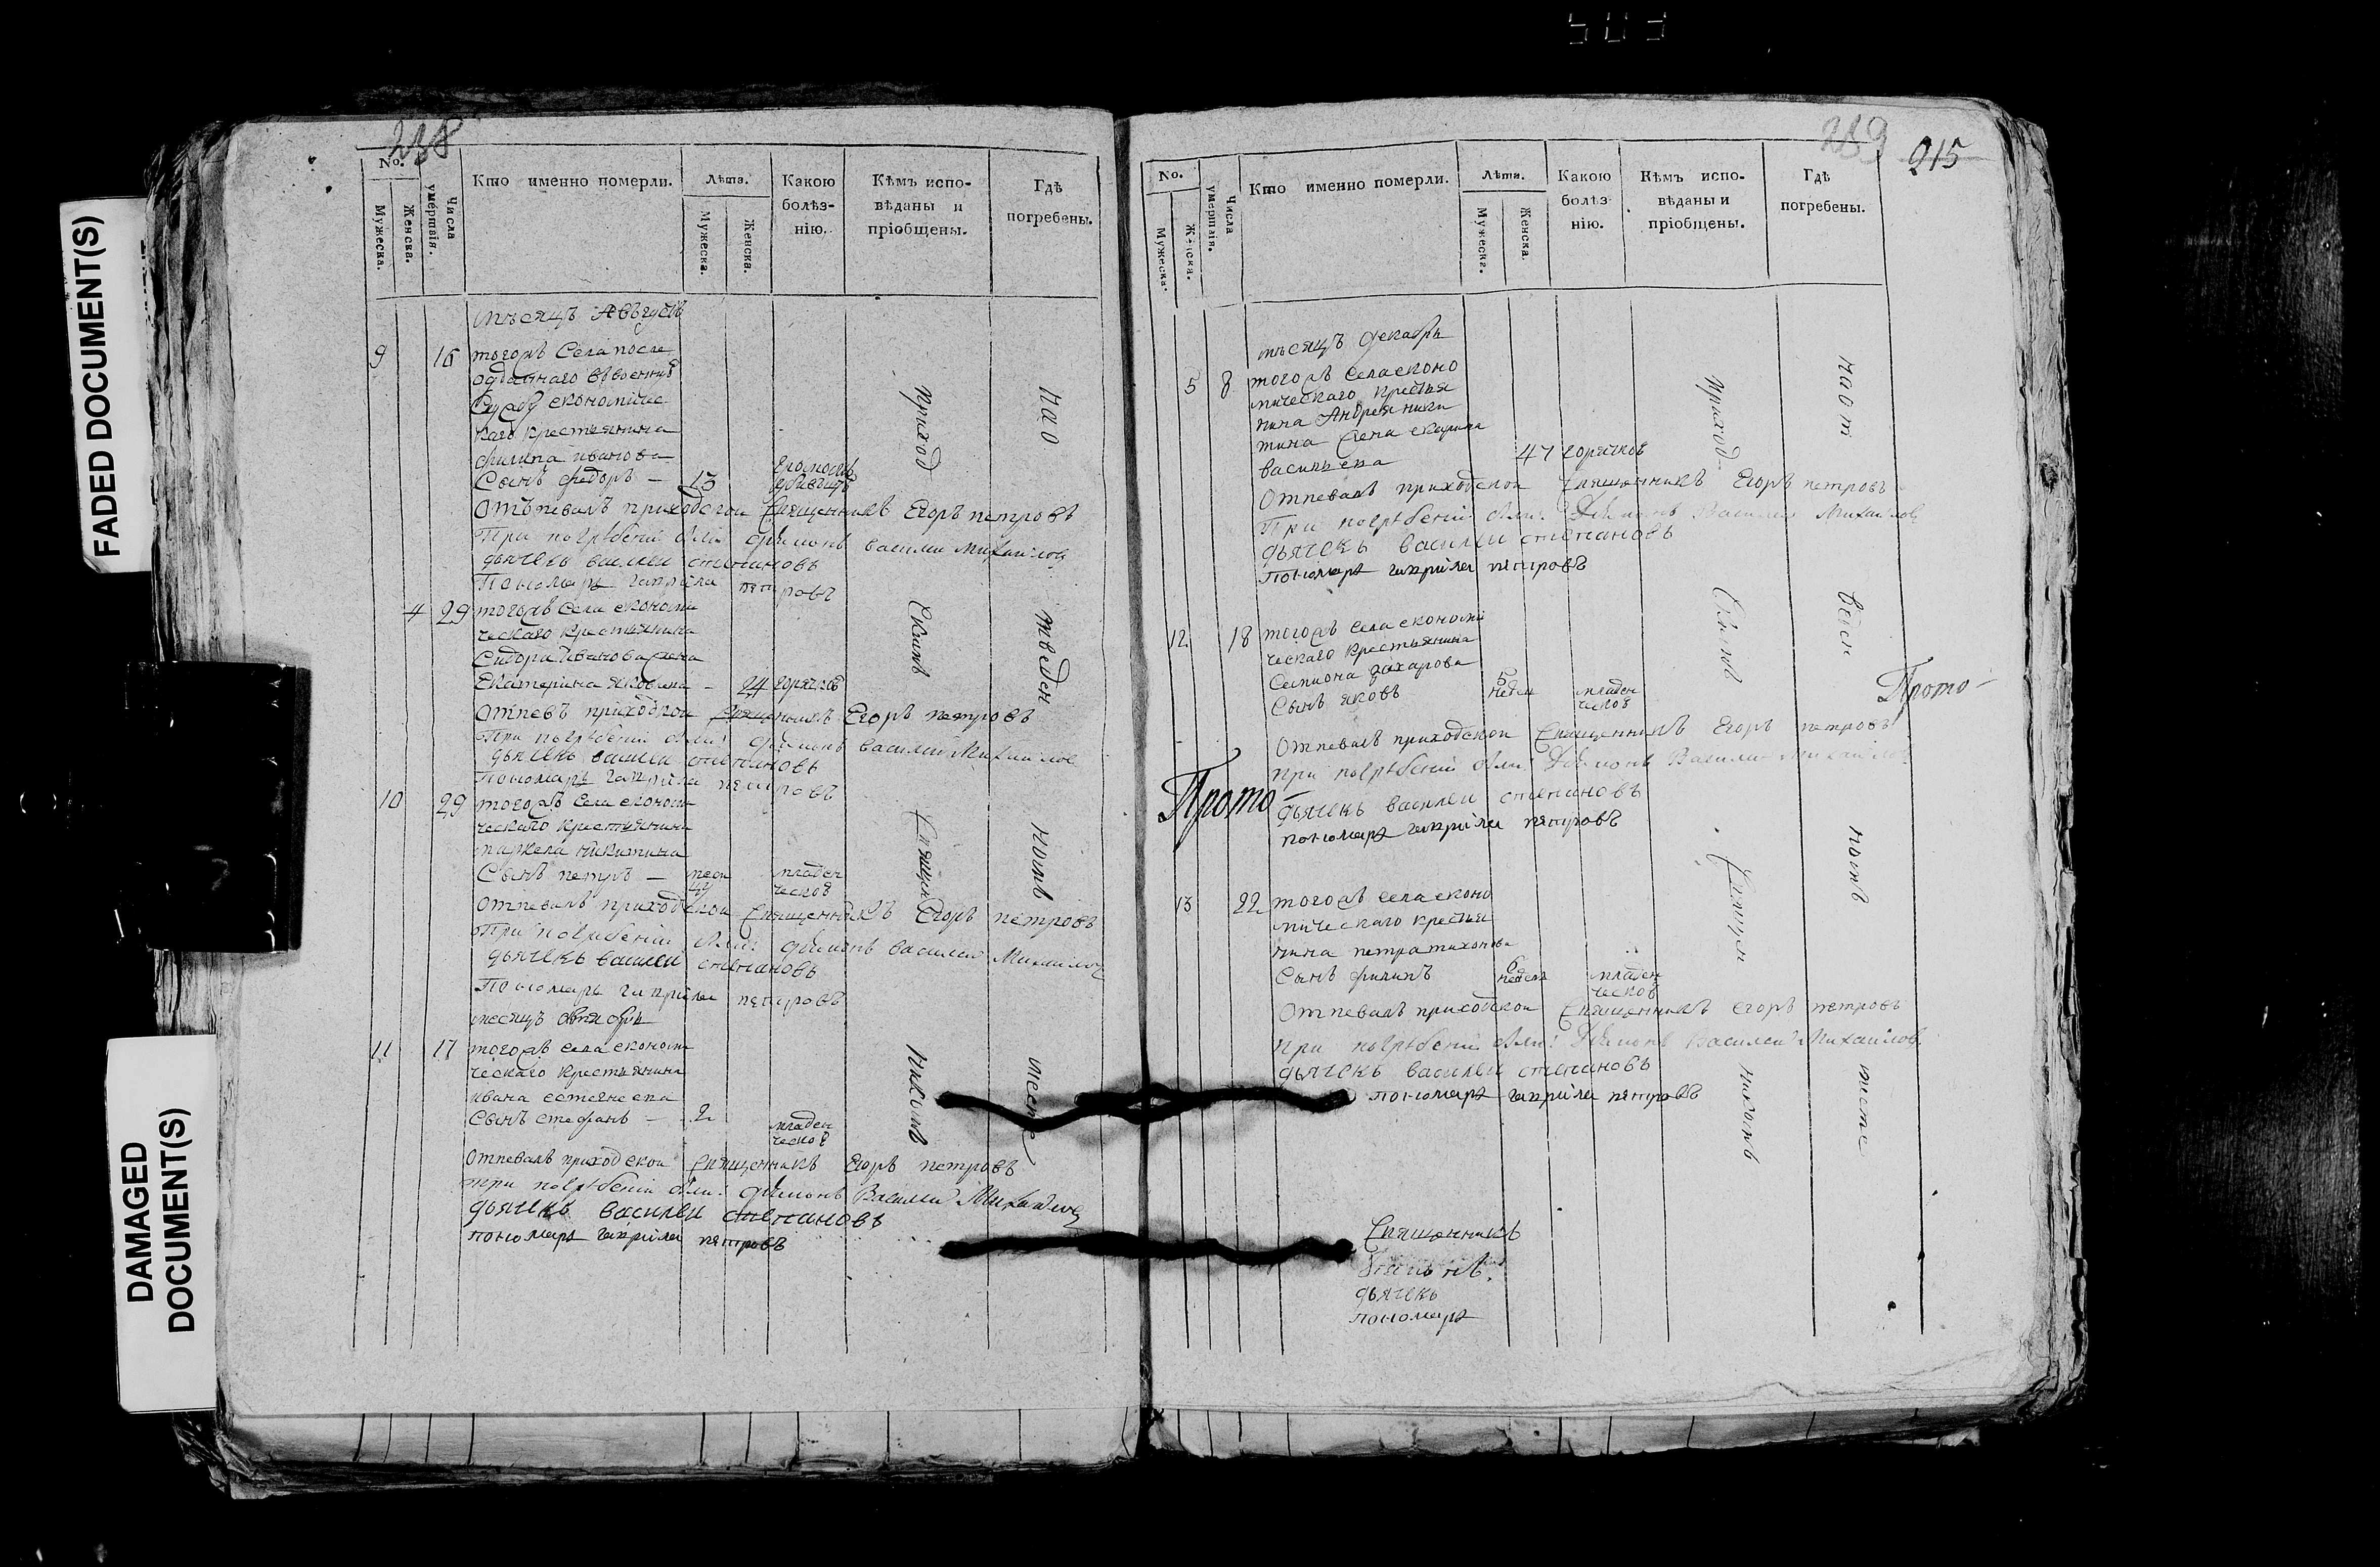 FADED DOCUMENT(S)
DAMAGED
DOCUMENT(S)
238
No.
Мужеска.
Женска.
Числа умертвія.
Кто именно померли.
Лѣта.
Мужеска.
Женска.
Какою болѣз-
нію.
Кѣмъ испо-
вѣданы и
пріобщены.
Гдѣ
погребены.
мѣсяцъ Августъ
9 16 тогожъ Села после
отданнаго
економичес
каго крестьянина
филипа иванова
Сынъ федоръ — 13
Отъпевалъ приходскои Священникъ Егоръ петровъ
При погрѣбеніи были: дьяконъ василей Михаиловъ
дьячекъ василеи степановъ
Пономарь гаврила петровъ
4 29 тогожъ Села економи
ческаго крестьянина
Сидора иванова жена
Екатерина яковлева — 24 горячкою
Отпевъ приходскои священникъ Егоръ петровъ
При погрѣбеніи были: дьяконъ василей Михаилов
дьячекъ василеи степановъ
Пономарь гаврила петровъ
10 29 тогожъ Села економи
ческаго крестьянина
маркела никитина
Сынъ петръ — меся
цу
младен
ческою
Отпевалъ приходскои Священникъ Егоръ петровъ
При погрѣбеніи были: дьяконъ василей Михаиловъ
дьячекъ василеи степановъ
Пономарь гаврила петровъ
месяцъ октябрь
11 17 тогожъ села економи
ческаго крестьянина
ивана
Сынъ стефанъ — 2
младен
ческою
Отпевалъ приходскои Священникъ Егоръ петровъ
при погрѣбеніи были: дьяконъ Василей Михаиловъ
дьячекъ василеи степановъ
пономарь гаврила петровъ
приход
скимъ
священ
никомъ
на о
тведен
номъ
месте
239
215
No.
Мужеска.
Женска.
Числа умертвія.
Кто именно померли.
Лѣта.
Мужеска.
Женска.
Какою
болѣз
нію.
Кѣмъ испо-
вѣданы и
пріобщены.
Гдѣ
погребены.
мѣсяцъ декабрь
5 8 тогожъ села еконо
мическаго крестья
нина Андрея ники
тина жена
васильева 47 горячкою
Отпевалъ приходскои Священникъ Егоръ петровъ
При погрѣбеніи были: Дьяконъ Василеи Михаиловъ
дьячекъ василеи степановъ
Пономарь гаврила петровъ
12 18 тогожъ села економи
ческаго крестьянина
Семиона захарова
Сынъ яковъ 5
недел
младен
ческою
Отпевалъ приходскои Священникъ Егоръ петровъ
при погрѣбеніи были: Дьяконъ Василеи Михаилов
дьячекъ василеи степановъ
пономарь гаврила петровъ
Прото-
Прото-
13 22 тогожъ села еконо
мическаго крестья
нина петра тихонова
Сынъ филипъ 6
недель
младен
ческою
Отпевалъ приходскои Священникъ Егоръ петровъ
при погрѣбеніи были: Дьяконъ Василеи Михаиловъ
дьячекъ василеи степановъ
пономарь гаврила петровъ
приход
скимъ
священ
никомъ
на от
веден
номъ
месте
Священникъ
дьячекъ
пономарь